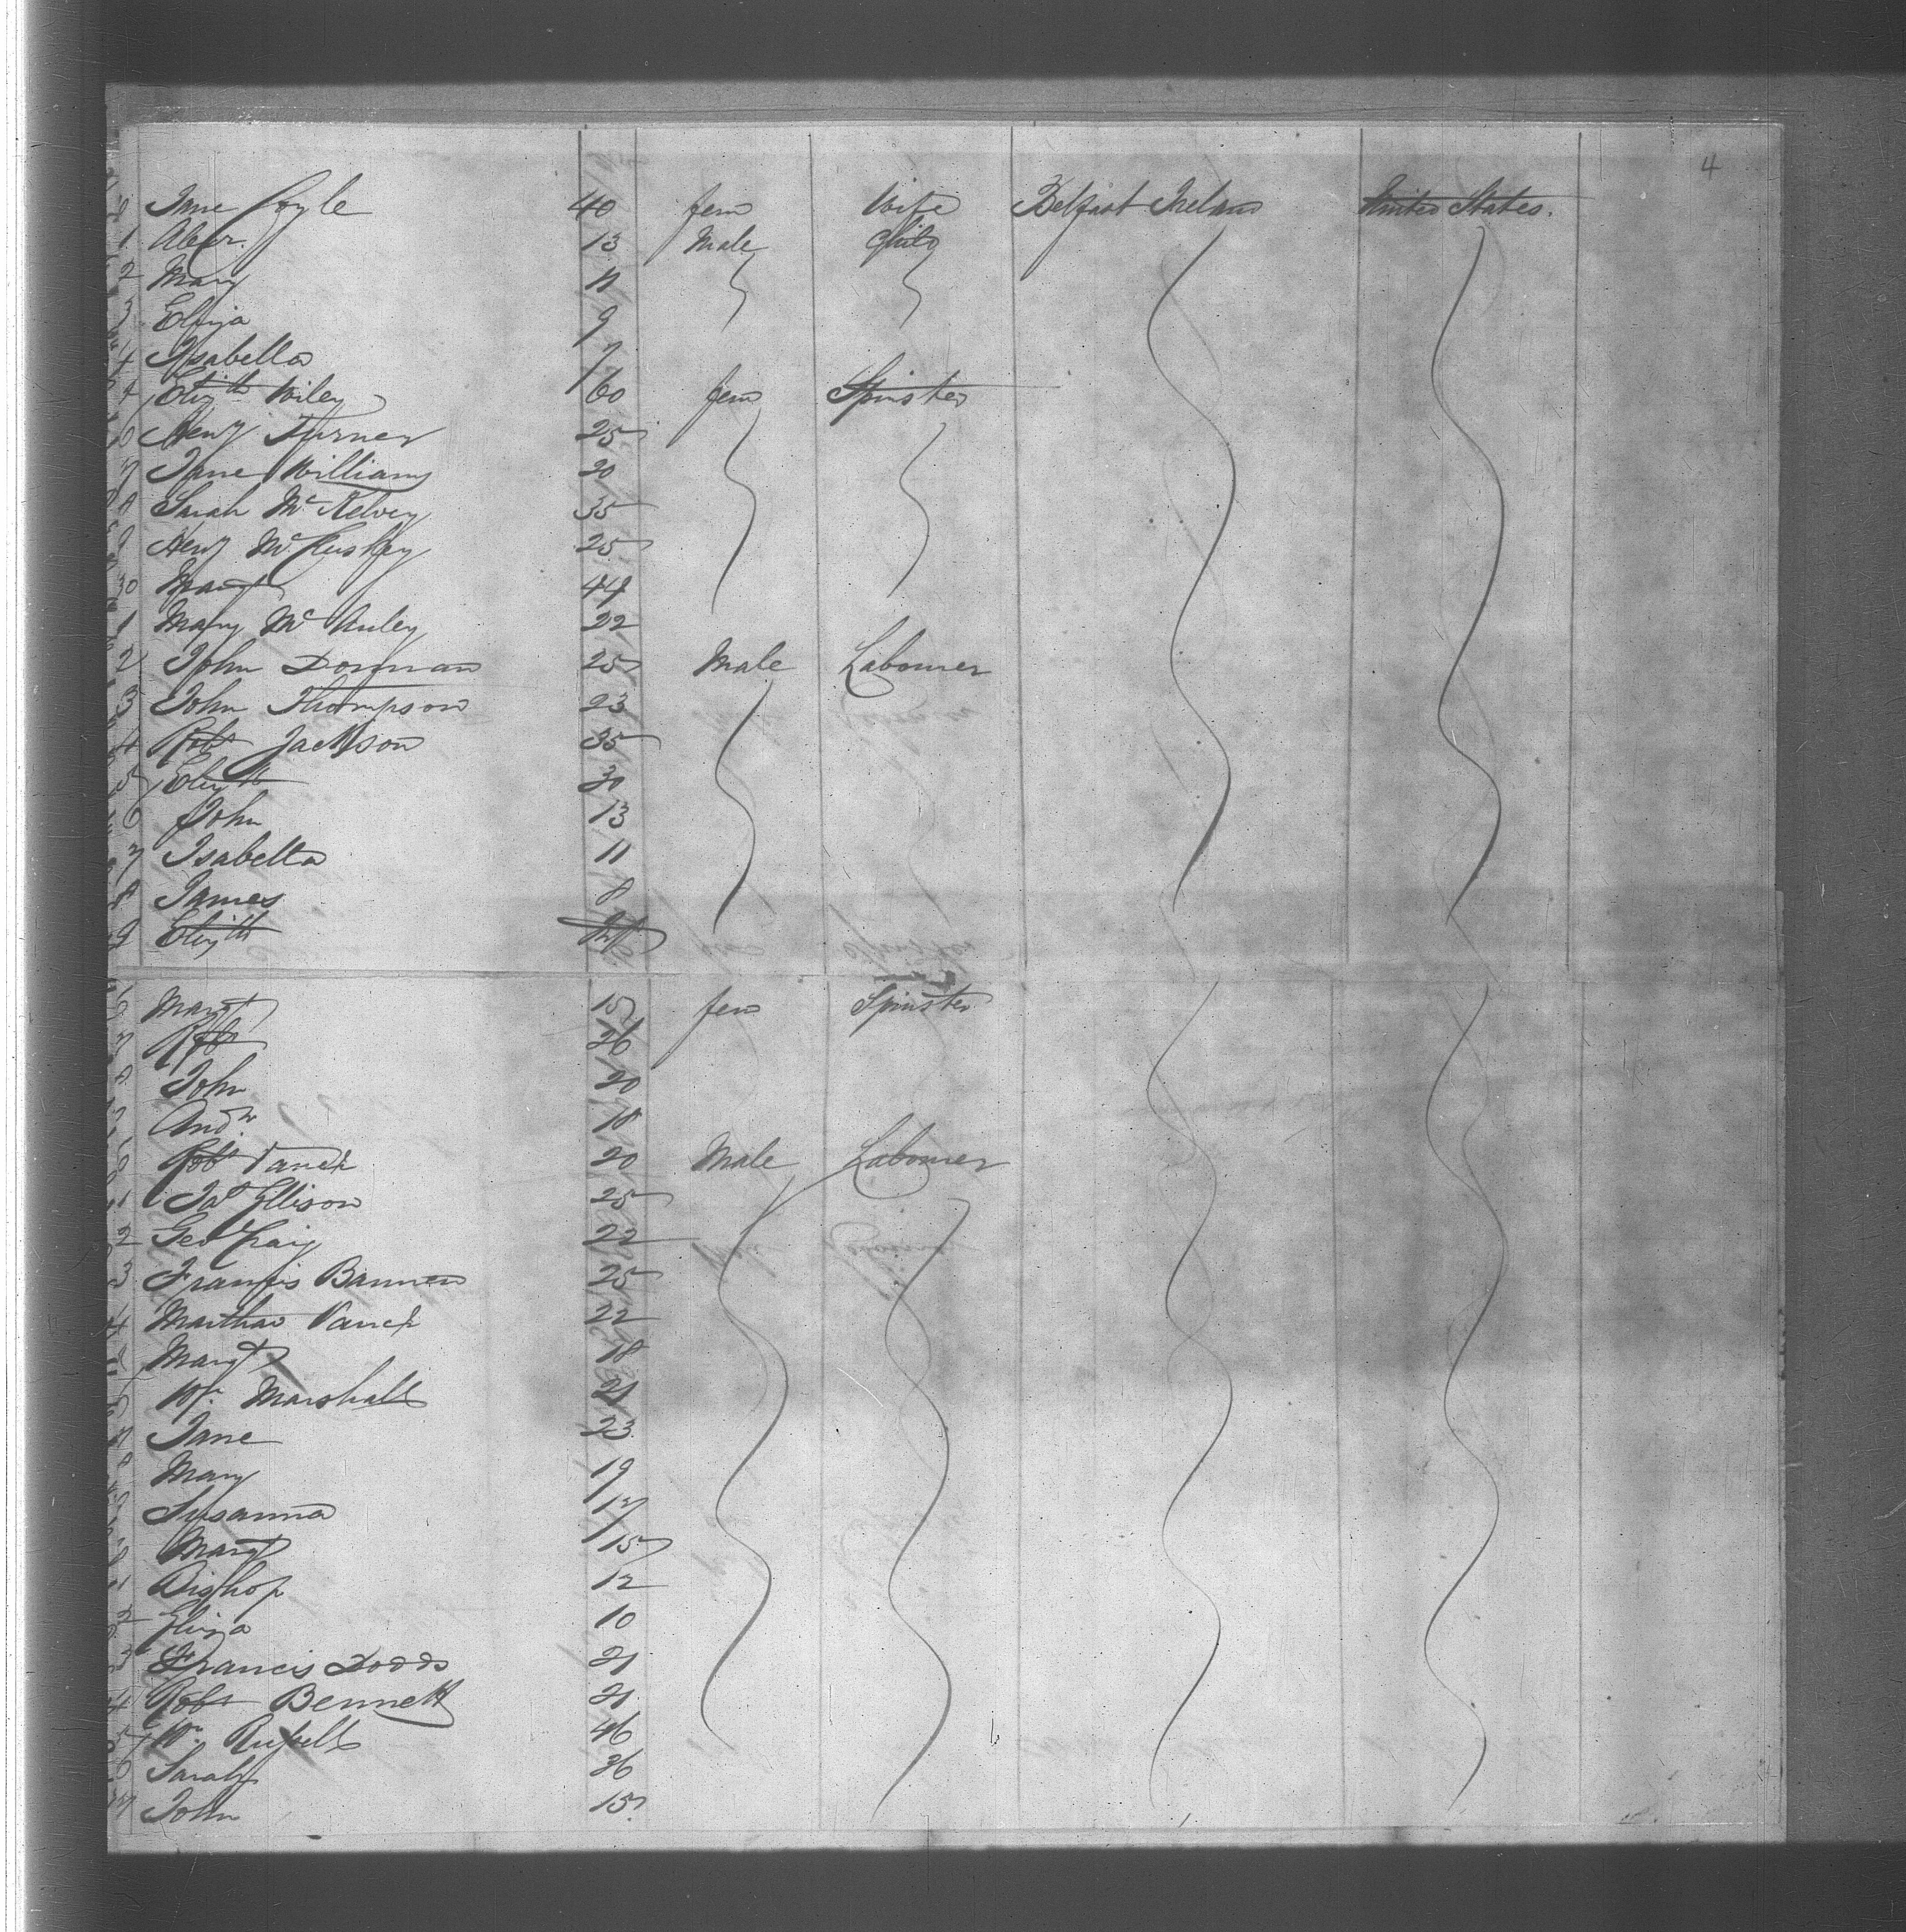 4
Jane Coyle 40 fem Wife Belfast Ireland United States.
1 Alexr. 13 Male Child
2 Mary 11
3 Eliza 9
4 Isabella 7
Elizth Wiley 60 fem Spinster
Henry Turner 25
7 Jane Williams 20
8 Sarah McKelvey 35
9 Henry McCluskey 25
30 Margt 44
1 Mary McAuley 22
2 John Dorman 25 Male Labourer
3 John Thompson 23
4 Robt Jackson 35
5 Elizth 30
6 John 13
7 Isabella 11
8 James 8
9 Elizth Inft
6 Margt 15 fem Spinster
7 Robt 26
8 John 20
9 Andw. 18
0 Robt Vance 20 Male Labourer
1 Jas Ellison 25
2 Geo Craig 22
3 Francis Bannen 25
4 Martha Vance 22
Margt 18
Wm. Marshall 21
7 Jane 23
8 Mary 19
Susanna 17
Margt 15
1 Bishop 12
2 Eliza 10
3 Francis Dodds 21
4 Robt Bennett 21
5 Wm. Russell 46
6 Sarah 36
7 John 15